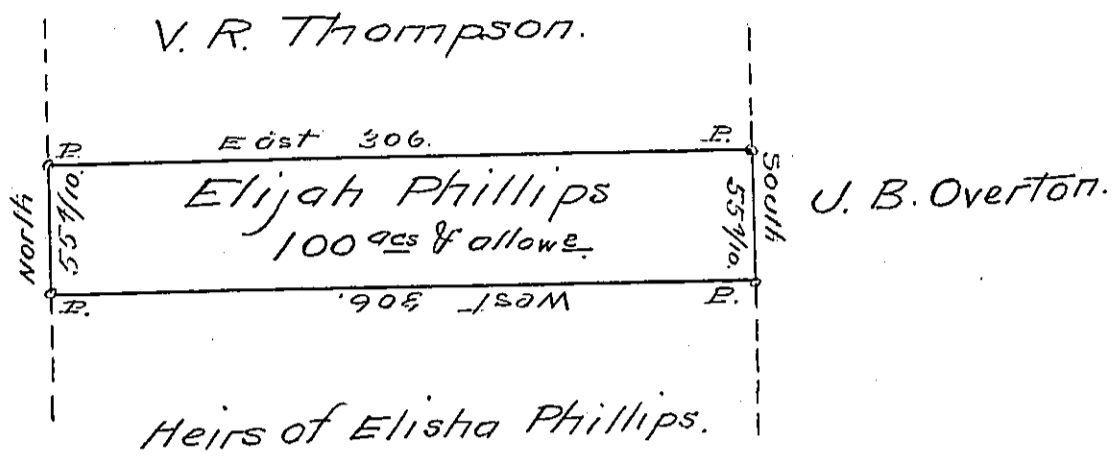 V. R. Thompson.
P. East 306. P.
North
55 4/10.
Elijah Phillips
100 acs & allowe.
South
55 4/10.
J. B. Overton.
P. West 306. P.
Heirs of Elisha Phillips.